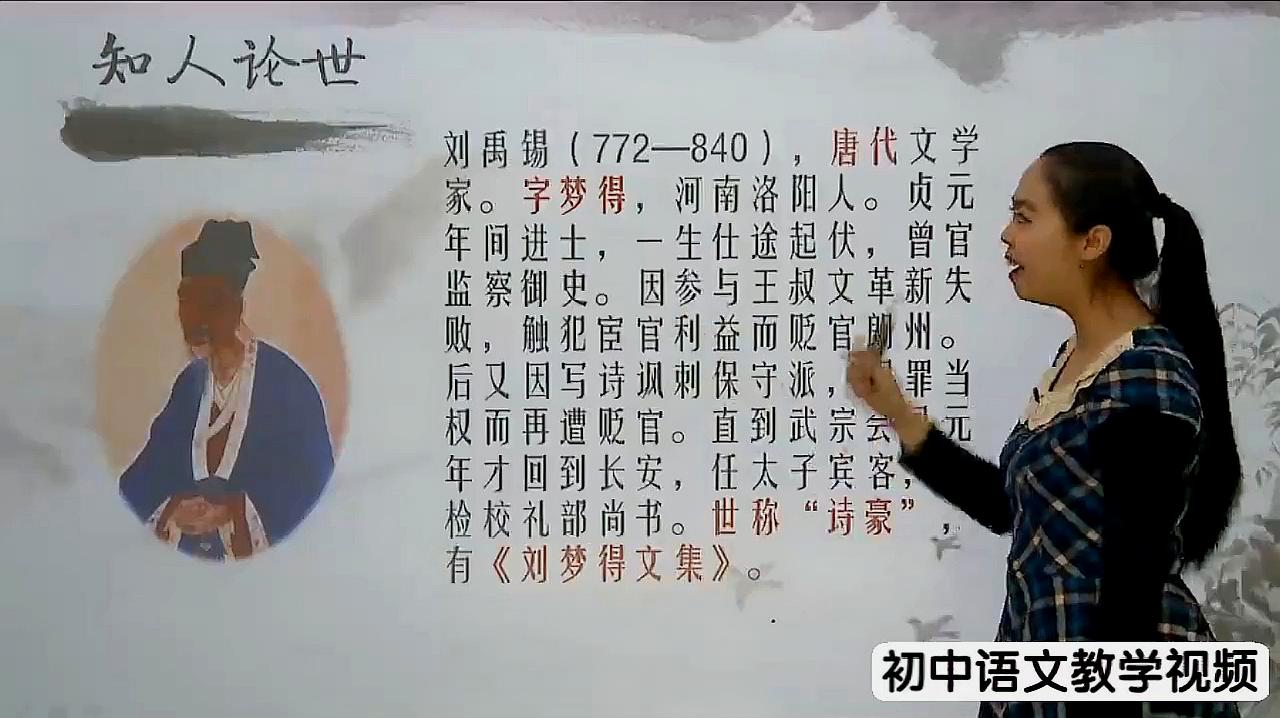 知人论世
刘禹锡（772—840），唐代文学
家。字梦得，河南洛阳人。贞元
年间进士，一生仕途起伏，曾官
监察御史。因参与王叔文革新失
败，触犯宦官利益而贬官朗州。
后又因写诗讽刺保守派，罪当
权而再遭贬官。直到武宗会元
年才回到长安，任太子宾客，
检校礼部尚书。世称“诗豪”，
有《刘梦得文集》。
初中语文教学视频